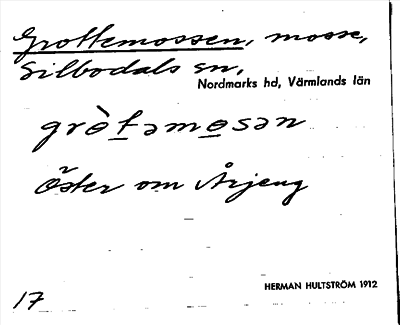 Grottemossen, mosse,
Silbodals sn.
Nordmarks hd, Värmlands län
grò̱t̠əmo̠sən
Öster om Årjeng
HERMAN HULTSTRÖM 1912
17